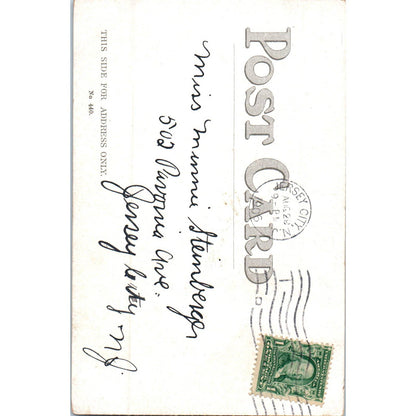 POST CARD
THIS SIDE FOR ADDRESS ONLY.
No 440.
JERSEY CITY
AUG 26
Miss Minnie Steinberger
502 Pavonia Ave.
Jersey City N.J.